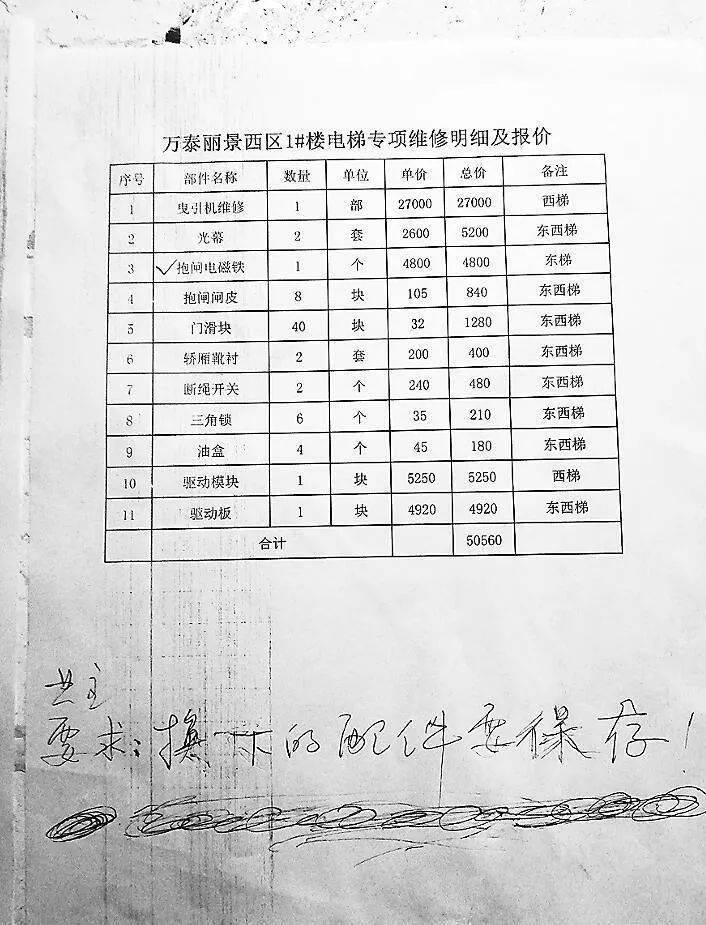 万泰丽景西区1#楼电梯专项维修明细及报价
序号 部件名称 数量 单位 单价 总价 备注
1 曳引机维修 1 部 27000 27000 西梯
2 光幕 2 套 2600 5200 东西梯
3 ✓抱闸电磁铁 1 个 4800 4800 东梯
4 抱闸闸皮 8 块 105 840 东西梯
5 门滑块 40 块 32 1280 东西梯
6 轿厢靴衬 2 套 200 400 东西梯
7 断绳开关 2 个 240 480 东西梯
8 三角锁 6 个 35 210 东西梯
9 油盒 4 个 45 180 东西梯
10 驱动模块 1 块 5250 5250 西梯
11 驱动板 1 块 4920 4920 东西梯
合计 50560
业主
要求:换下的配件要保存!